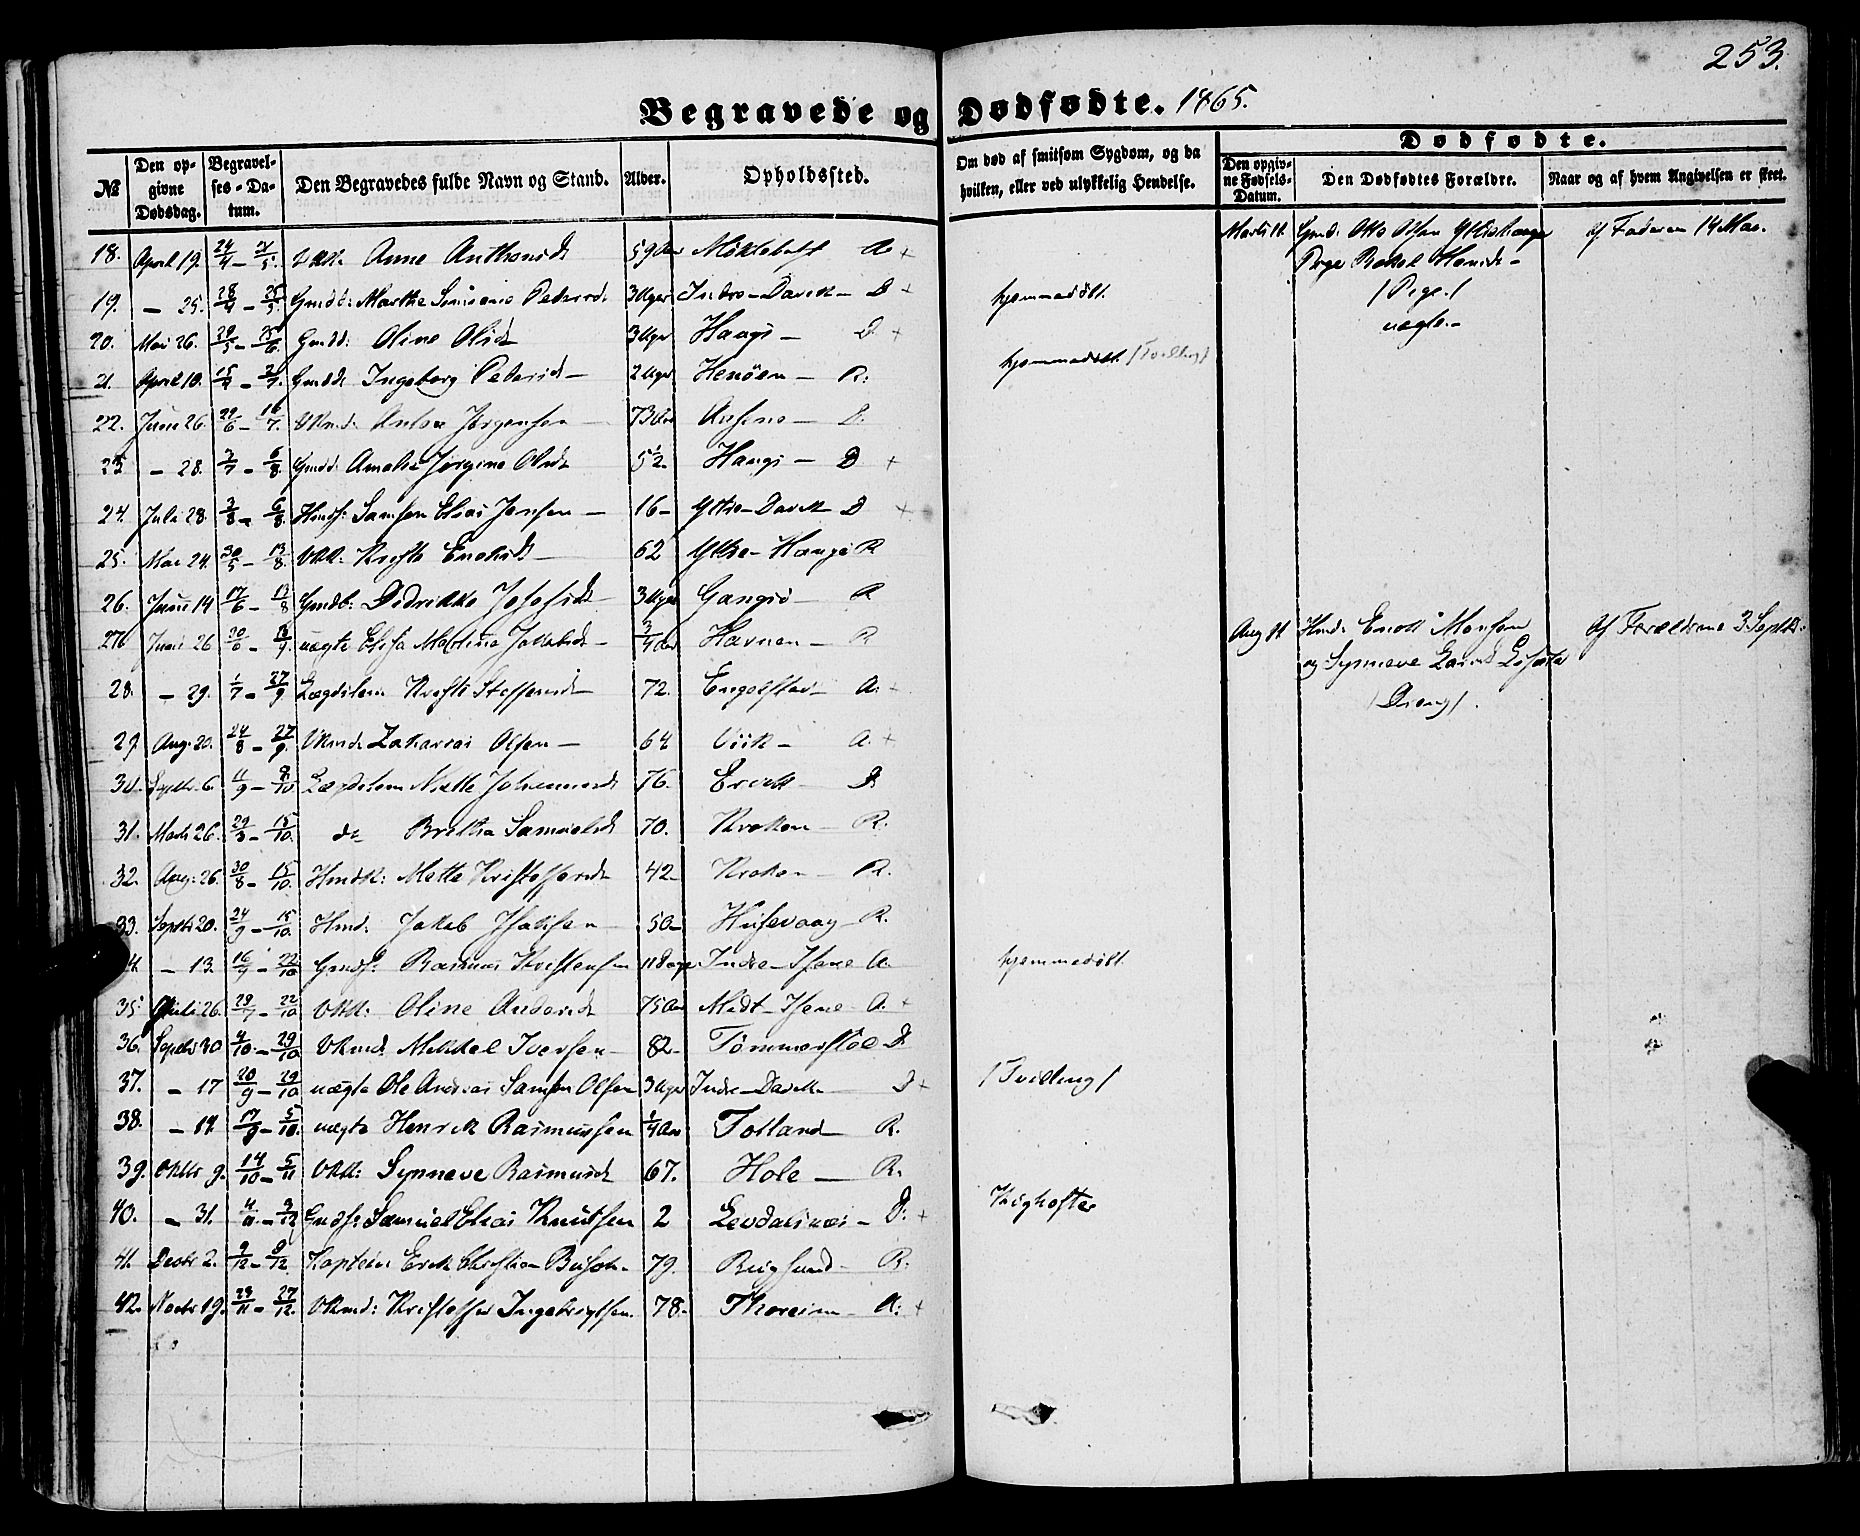 253.
Begravede og Dødfødte. 1865.
№ Den opgivne Dødsdag. Begravelses-Datum. Den Begravedes fulde Navn og Stand. Alder. Opholdssted. Om død af smitsom Sygdom, og da hvilken, eller ved ulykkelig Hendelse. Dødfødte. Den opgivne Fødsels-Datum. Den Dødfødtes Forældre. Naar og af hvem Angivelsen er skeet.
18. April 19. 24/4 - 21/5. Anne Anthonisd 59 Aar Myklebust A +
19. - 25. 28/4 - 25/5. Gmdb: Marthe Pedersd. 3 Uger Indre-Davik - D + hjemmedøbt.
20. Mai 26. 29/5 - 25/6. Gmdd: Oline Olsd 3 Uger Haugs - D. +
21. April 10. 15/4 - 2/7. Gmdd: Ingeborg Pedersd - 2 Uger Henøen - R: hjemmedøbt (Tvilling)
22. Juni 26. 29/6 - 16/7. VKmd. Anton Jørgensen - 73 Aar - D.
23 - 28. 2/7 - 6/8. Gmdd: Amalie Jørgine Olsd. 5½. Haugs - D +
24. Juli 28. 3/8 - 6/8. Hmds: Samson Elias Jensen - 16 - Ytre-Davik D +
25. Mai 24. 30/5 - 13/8. VKK: - 62 Ytre-Haugs R
26. Juni 14 17/6 - 13/8 Gmdb: Didrikke Josefsd - 3 Uger - R
27. Juni 26 30/6 - uægte Elisa Martina Jakobsd - ¾ Aar Havnen - R
28. - 29. 1/7 - 27/9. Lægdslem Kirsti Steffensd - 72. Engelstad - A. +
29. Aug. 20. 24/8 - 27/9. VKmd. Zakarias Olsen - 64 Viik - A. +
30. Septbr. 6. 11/9 - 8/10. Lægdslem Mette Johannesd 76. - D
31. Marts 26. 29/3 - 15/10. do Brithe Samuelsd 70. Kroken - R.
32. Aug: 26. 30/8 - 15/10. HmdK: Mette Kristofersd 42 - Kroken - R.
33. Septbr 20. 24/9 - 15/10. Hmd. Jakob 50 - Husevaag - R.
34. - 13. 16/9 - 22/10 Gmds: Rasmus Kristensen 11 Dage Indre- A. hjemmedøbt.
35. Juli 26. 29/7 - 22/10 VKK: Oline Andersd 75 Aar Midt- A. +
36. Septbr 30 4/10 - 29/10 VKmd. Mikkel Iversen - 82 - Tømmerstøl D.
37. - 17 20/9 - 29/10 uægte Ole Andreas Samson Olsen 3 Uger Indre-Davik D + (Tvilling)
38. - 14. 17/9 - 5/10. uægte Henrik Rasmussen ¼ Aar Totland - R.
39. Oktbr 9. 14/10 - 5/11 VKK: Synneve Rasmusd 67. Hole - R.
40. - 31. 4/11 - 3/12 Gmds: Samuel Elias Knutsen 2 Levdalsnæs - D: + Kighoste
41. Decbr 2. 9/12 - 9/12. Kaptein Erik Christian Busch. 79. Rugsund - R.
42. Novbr 19. 23/11 - 27/12. VKmd: Kristoffer Ingebrigtsen. 78. Thoreim - A: +
Marts 11. Gmd. Otto Olsen Ytrehauge
Pige Rakel - af Faderen 14 Mai.
(Pige.)
uægte. -
Aug 31. Hmd. Enok Monsen
og Synneve af Forældrene 3 Septbr.
(Dreng).